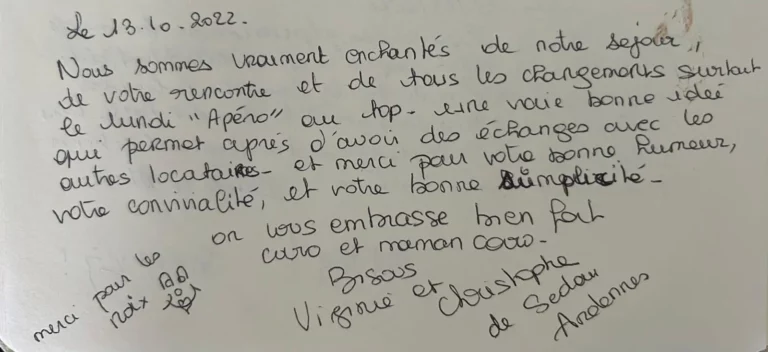 Le 13.10.2022.
Nous sommes vraiment enchantés de notre sejour,
de votre rencontre et de tous les changements surtout
le lundi "Apéro" au top - une vraie bonne idée
qui permet après d'avoir des échanges avec les
autres locataires - et merci pour votre bonne humeur,
votre convivialité, et votre bonne simplicité -
on vous embrasse bien fort
caro et maman caro -
Bisous
Virginie et Christophe
de Sedan
Ardennes
merci pour les
noix